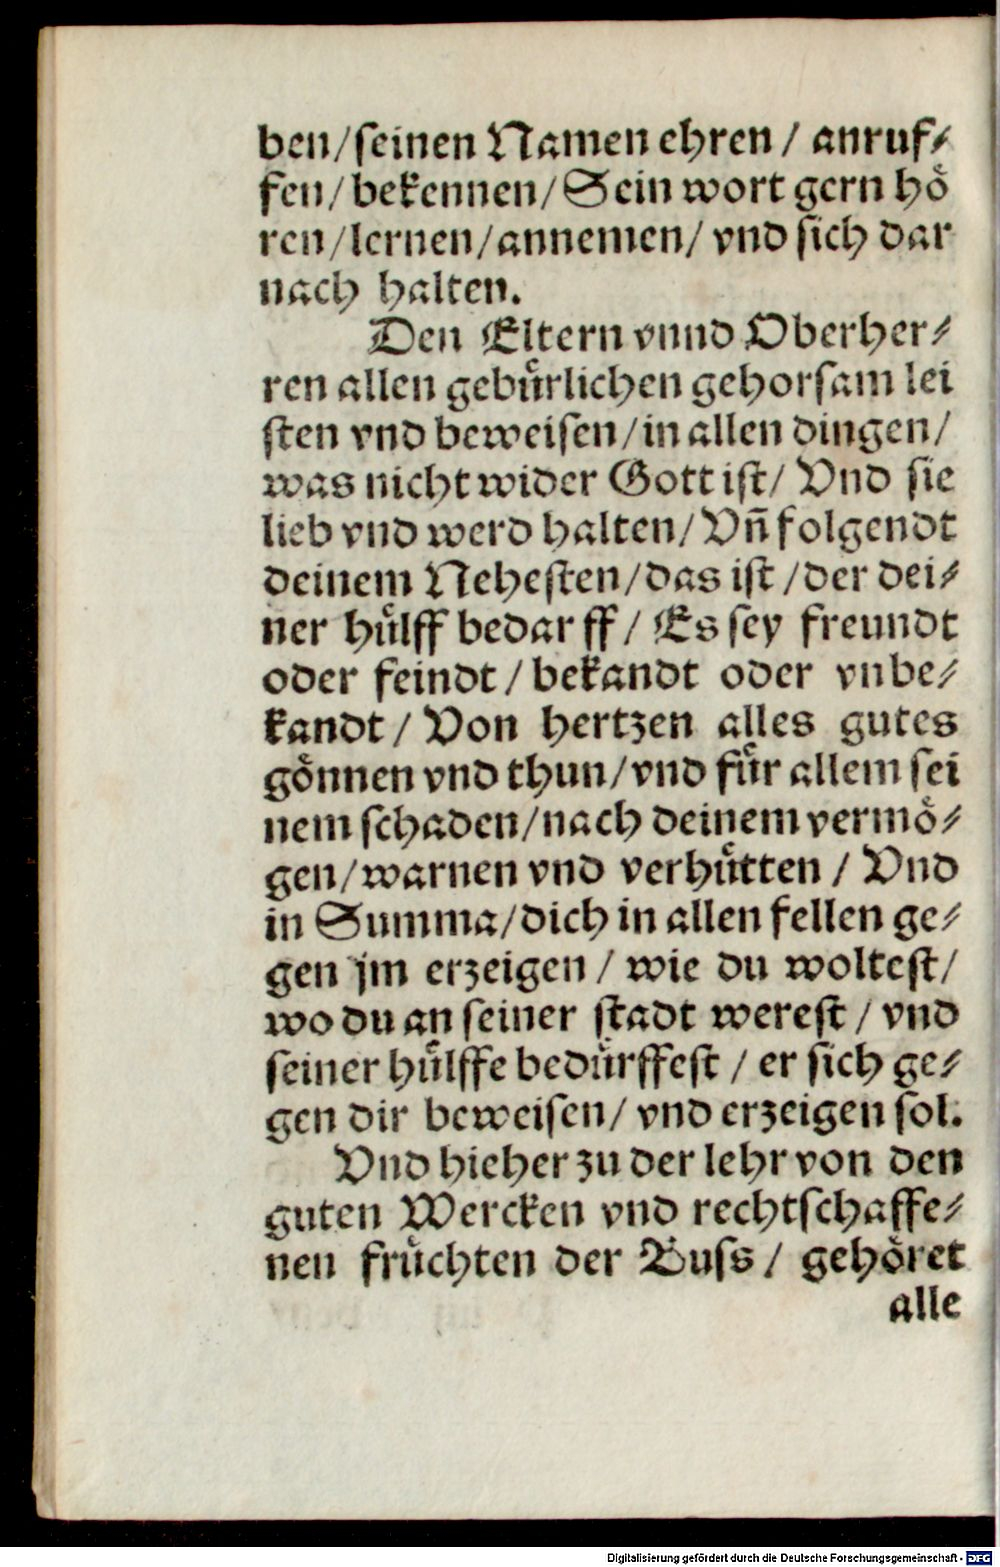 ben/seinen Namen ehren / anruf⸗
fen/bekennen/Sein wort gern hoͤ
ren/lernen/annemen/ vnd sich dar
nach halten.
Den Eltern vnnd Oberher⸗
ren allen gebuͤrlichen gehorsam lei
sten vnd beweisen/in allen dingen/
was nicht wider Gott ist/ Vnd sie
lieb vnd werd halten/Vñ folgendt
deinem Nehesten/das ist /der dei⸗
ner huͤlff bedarff / Es sey freundt
oder feindt / bekandt oder vnbe⸗
kandt / Von hertzen alles gutes
goͤnnen vnd thun/vnd fuͤr allem sei
nem schaden/nach deinem vermoͤ⸗
gen/warnen vnd verhuͤtten / Vnd
in Summa/dich in allen fellen ge⸗
gen jm erzeigen / wie du woltest/
wo du an seiner stadt werest / vnd
seiner huͤlffe beduͤrffest / er sich ge⸗
gen dir beweisen/ vnd erzeigen sol.
Vnd hieher zu der lehr von den
guten Wercken vnd rechtschaffe⸗
nen fruͤchten der Buss / gehoͤret
alle
Digitalisierung gefördert durch die Deutsche Forschungsgemeinschaft - DFG